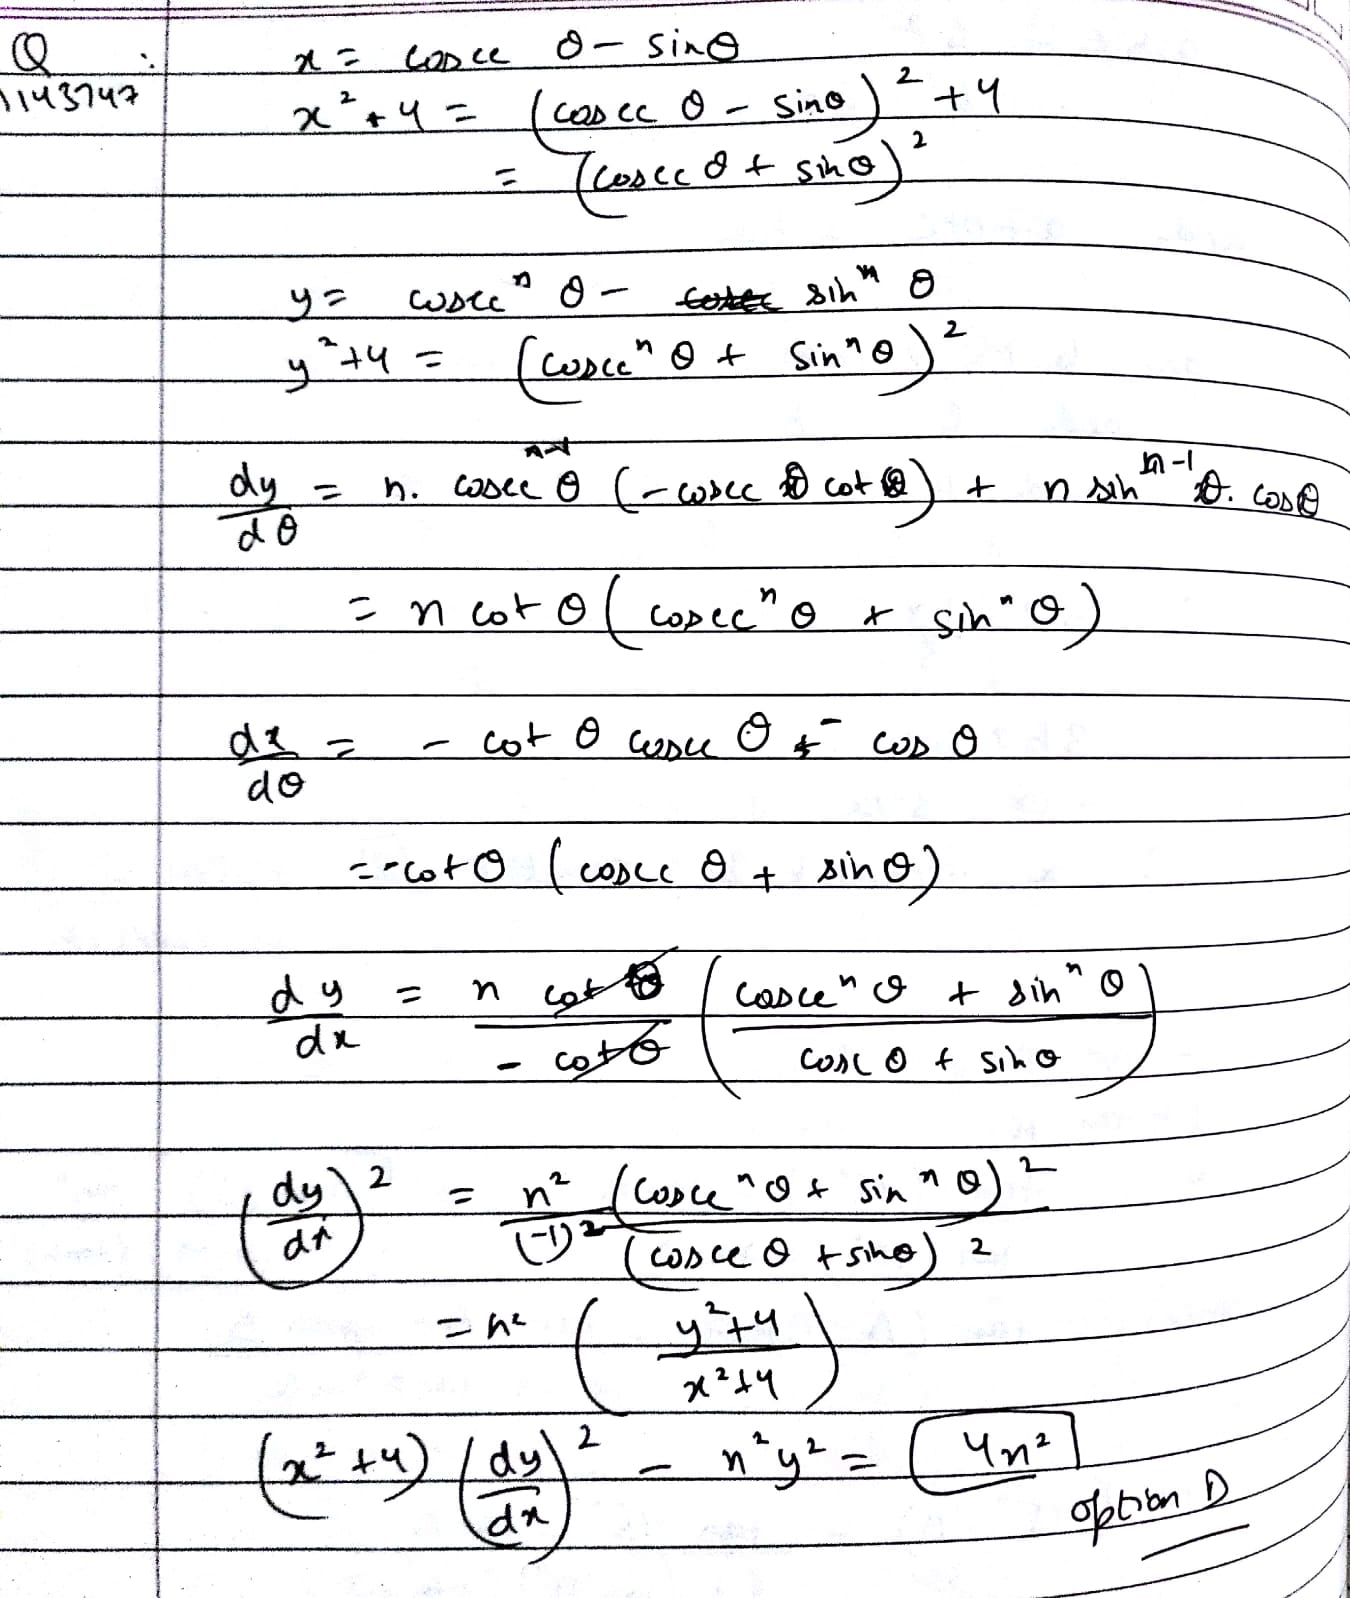 Q :
1143747
x = cosec θ - sin θ
x² + 4 = (cosec θ - sin θ)² + 4
= (cosec θ + sin θ)²
y = cosecⁿ θ - sinⁿ θ
y² + 4 = (cosecⁿ θ + sinⁿ θ)²
dy/dθ = n. cosecⁿ⁻¹ θ (- cosec θ cot θ) + n sinⁿ⁻¹ θ. cos θ
= n cot θ (cosecⁿ θ + sinⁿ θ)
dx/dθ = - cot θ cosec θ - cos θ
= - cot θ (cosec θ + sin θ)
dy/dx = n cot θ / - cot θ (cosecⁿ θ + sinⁿ θ / cosc θ + sin θ)
(dy/dx)² = n² (cosecⁿ θ + sinⁿ θ)² / (-1)² (cosec θ + sin θ)²
= n² (y² + 4 / x² + 4)
(x² + 4) (dy/dx)² - n²y² = 4n²
option D